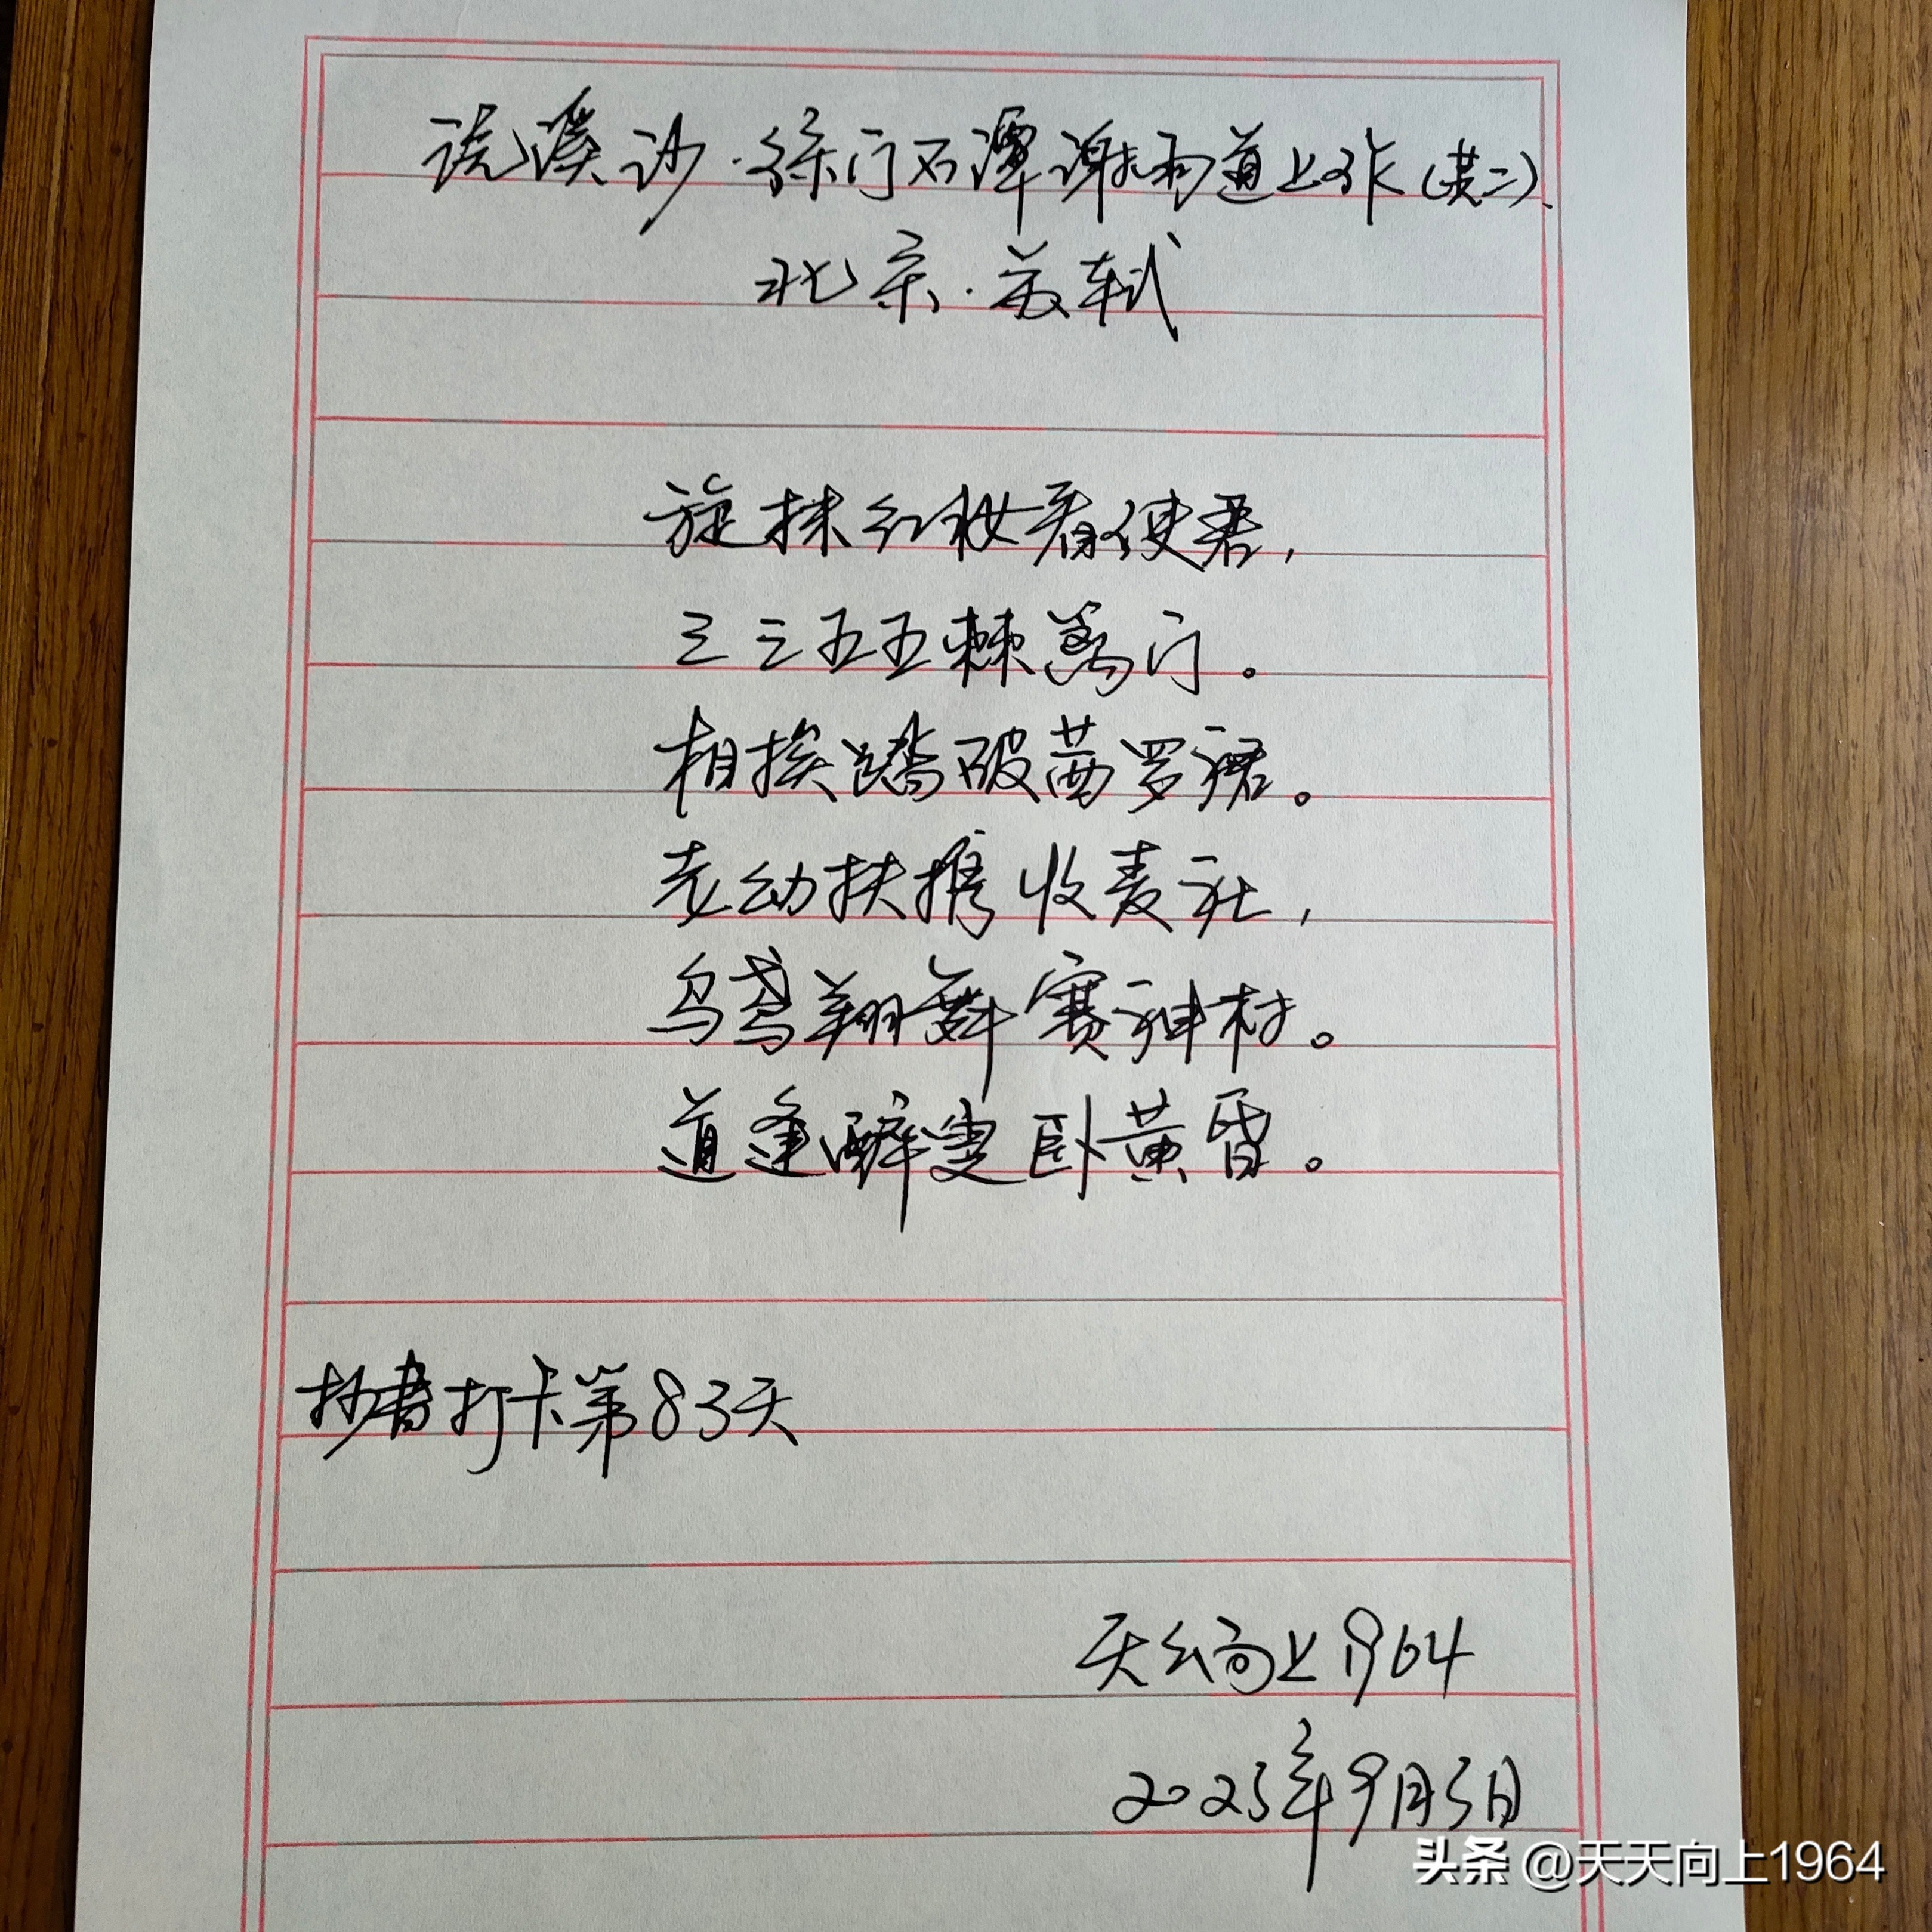 浣溪沙·徐门石潭谢雨道上作(其二)、
北宋·苏轼
旋抹红妆看使君,
三三五五棘篱门。
相挨踏破茜罗裙。
老幼扶携收麦社,
乌鸢翔舞赛神村。
道逢醉叟卧黄昏。
抄书打卡第83天
天天向上1964
2025年9月5日
头条 @天天向上1964